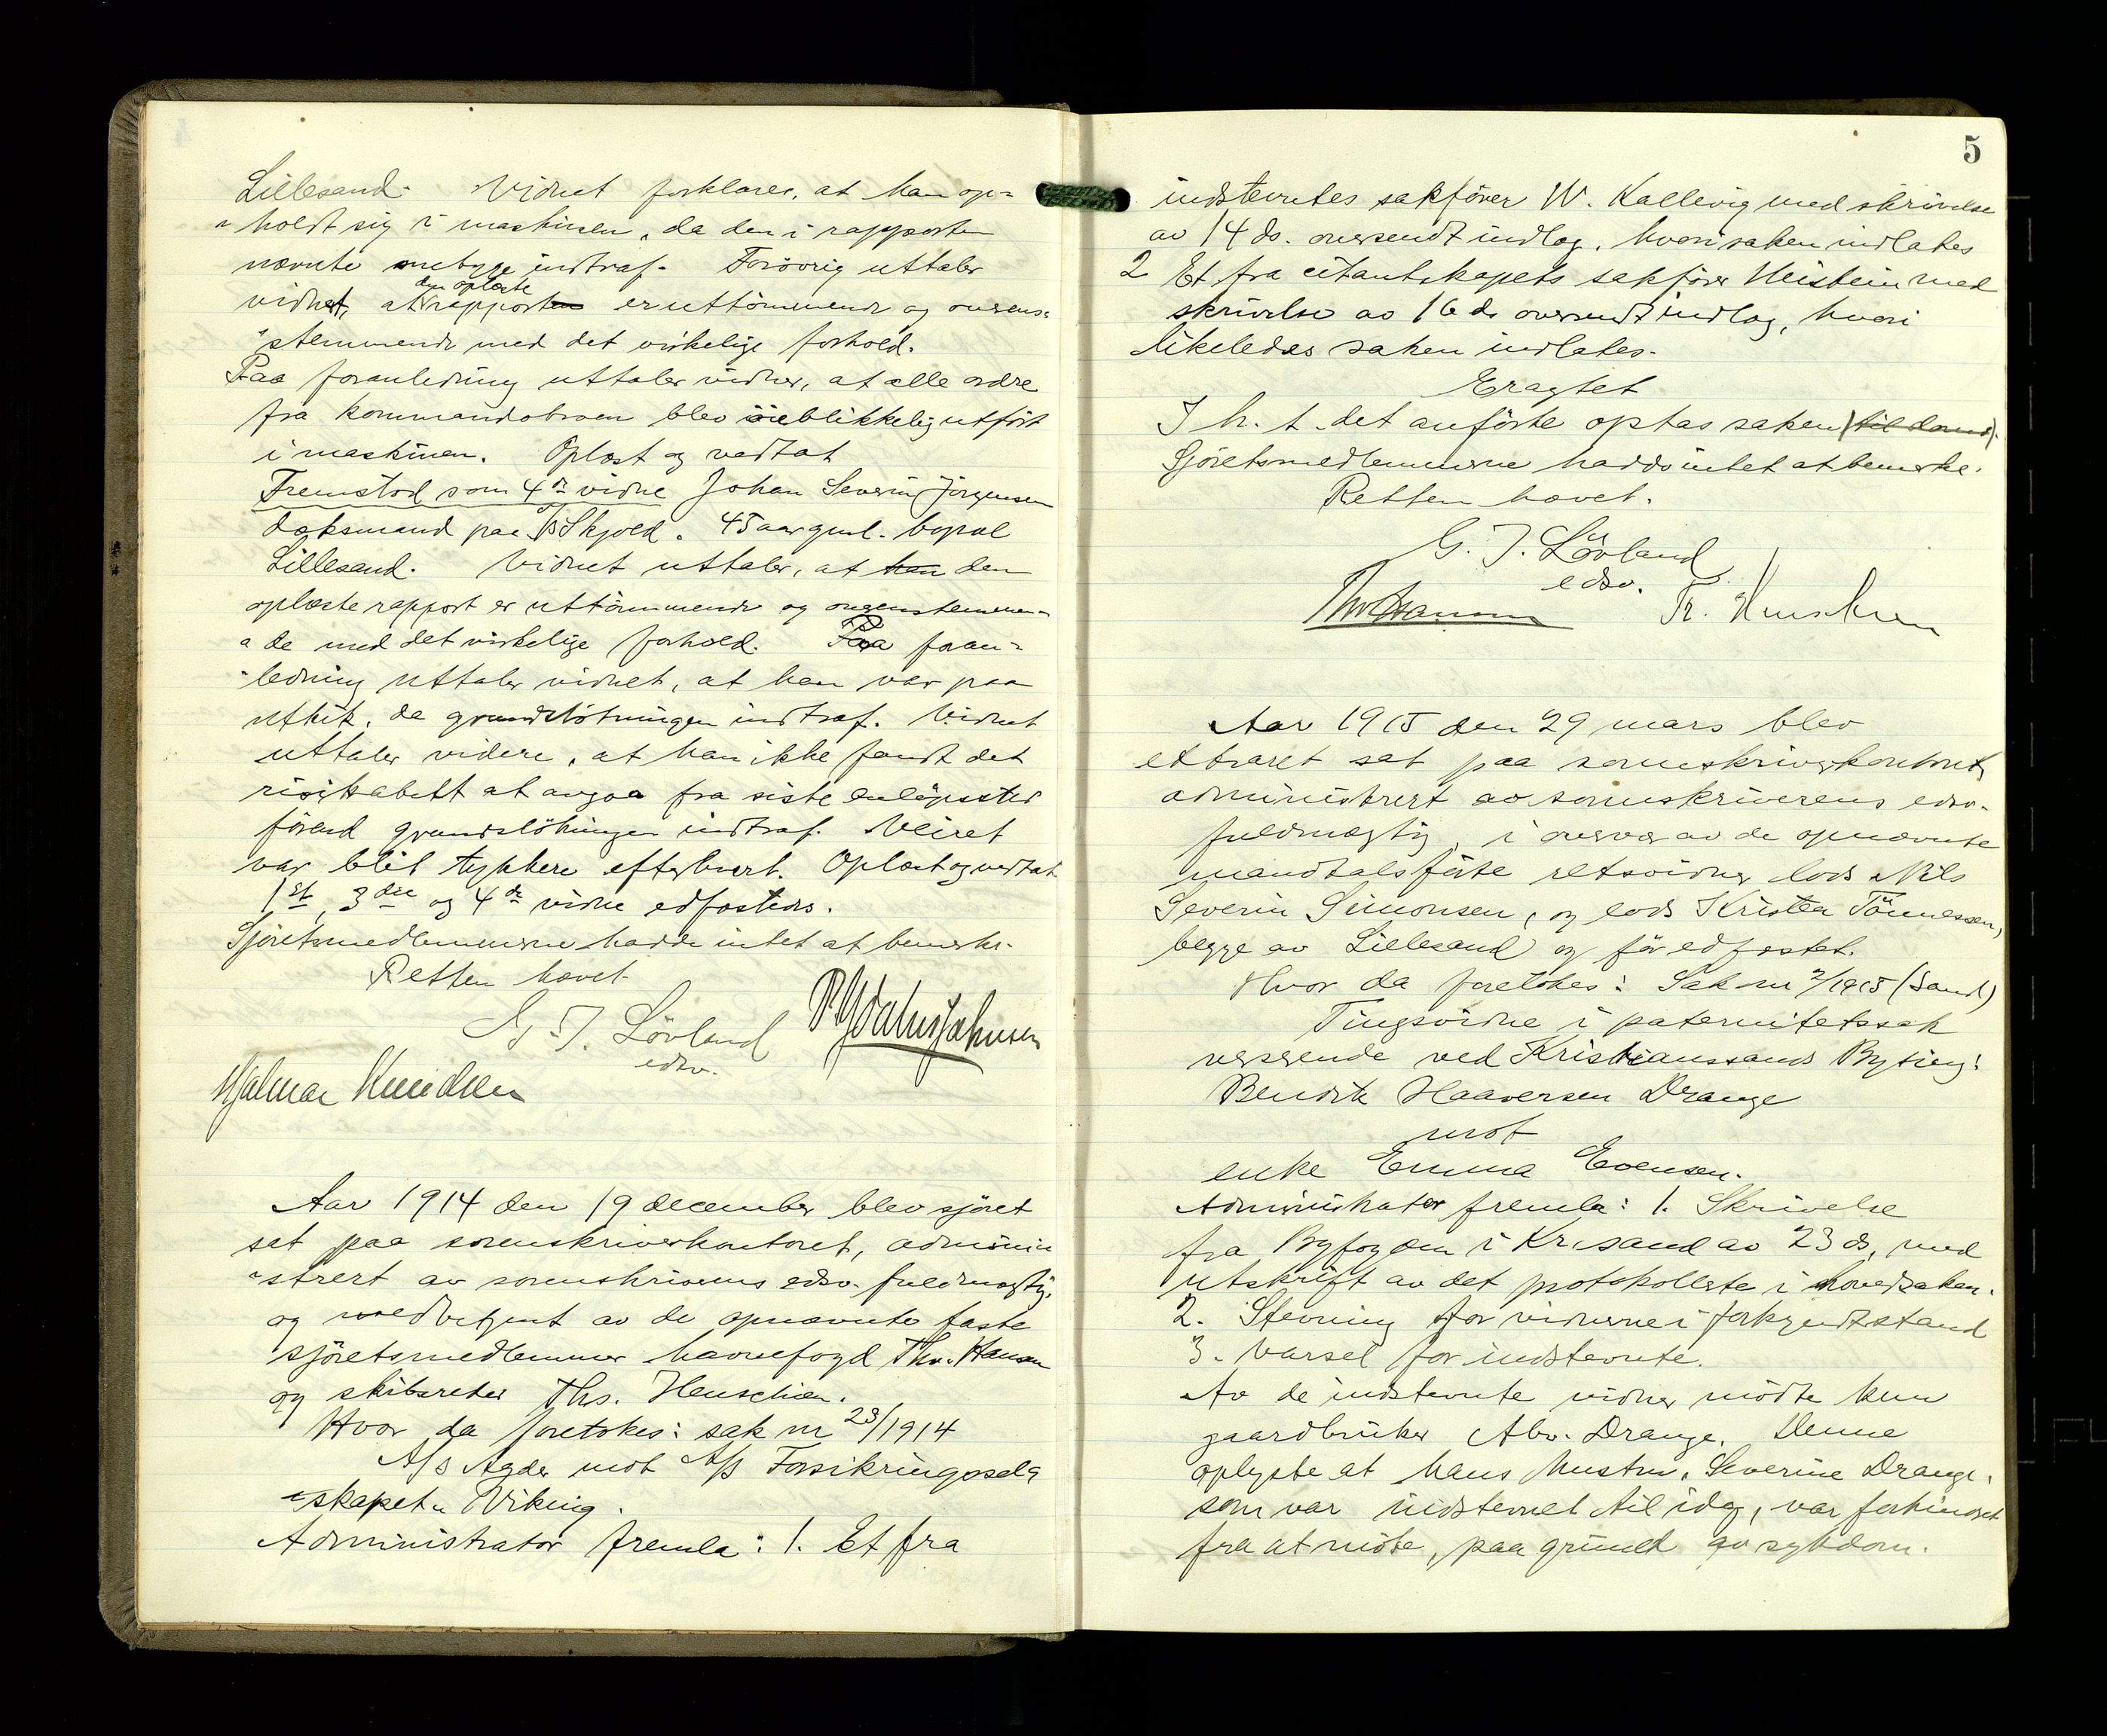 Lillesand. Vidnet forklarer, at han op=
"holdt sig i maskinen, da den i rapporten
nævnte indtraf. Forøvrig uttaler
den oplæste
vidnet, at rapporten er uttömmende og overens=
"stemmende med det virkelige forhold.
Paa foranledning uttaler vidnet, at alle ordre
fra kommandobroen blev öieblikkelig utfört
i maskinen. Oplæst og vedtat
Fremstod som 4de vidne Johan Severin Jörgensen
daksmand paa D/S Skjold. 45 aar gml. bopæl
Lillesand. Vidnet uttaler, at han den
oplæste rapport er uttömmende og overenstemmen=
"de med det virkelige forhold. Paa foran=
"ledning uttaler vidnet, at han var paa
utkik, da grundstötningen indtraf. Vidnet
uttaler videre, at han ikke fandt det
risikabelt at avgaa fra siste anlöpssted
förend grundstötningen indtraf. Veiret
var blit tykkere efterhvert. Oplæst og vedtat
1ste, 3die og 4de vidne edfæstedes.
Sjöretsmedlemmerne hadde intet at bemerke.
Retten hævet
G. T. Lövland
edsv.
Hjalmar Knudsen
Aar 1914 den 19 december blev sjöret
sat paa sorenskriverkontoret, admini=
"strert av sorenskriverens edsv. fuldmægtig,
og medbetjent av de opnævnte faste
sjöretsmedlemmer havnefogd Thv. Hansen
og skibsreder Ths. Henschien.
Hvor da foretokes: sak nr 23/1914
A/S Agder mot A/S Forsikringssel=
"skapet "Viking".
Administrator fremla: 1. Et fra
5
indstevntes sakförer W. Kallevig med skrivelse
av 14 ds. oversendt indlæg, hvori saken indlates
2 Et fra citantskapets sakförer Heistein med
skrivelse av 16 ds oversendt indlæg, hvori
likeledes saken indlates.
Eragtet
I h. t. det anförte optas saken (til doms).
Sjöretsmedlemmerne hadde intet at bemerke.
Retten hævet.
G. T. Lövland
edsv.
Thv Hansen Ths. Henschien
Aar 1915 den 29 mars blev
extraret sat paa sorenskriverkontoret,
administrert av sorenskriverens edsv.
fuldmægtig, i overvær av de opnævnte
mandtalsförte retsvidner lods Nils
Severin Simonsen, og lods Krister Tönnessen,
begge av Lillesand og för edfæstet.
Hvor da foretokes: Sak nr 2/1915 (Sand)
Tingsvidne i paternitetssak
verserende ved Kristianssands Byting:
Bendik Haaversen Drange
mot
enke Emma Evensen.
Administrator fremla: 1. Skrivelse
fra Byfogden i Kr.sand av 23 ds, med
utskrift av det protokollerte i hovedsaken.
2. Stevning for vidnerne i forkyndt stand
3. Varsel for indstevnte.
Av de indstevnte vidner mödte kun
gaardbruker Abr. Drange. Denne
oplyste at hans hustru, Severine Drange,
som var indstevnet til idag, var forhindret
fra at möte, paa grund av sykdom.